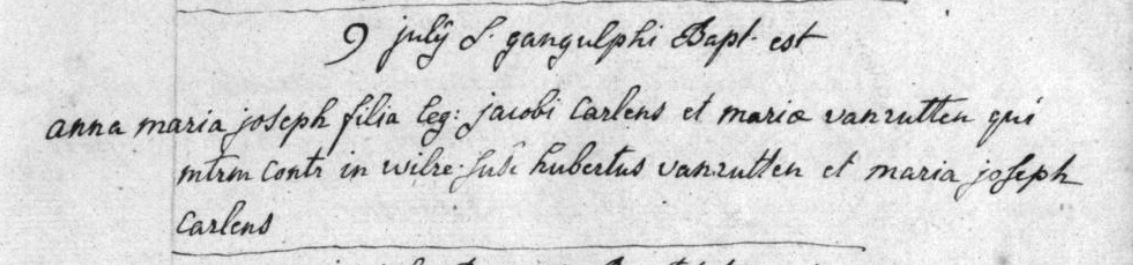 9 julÿ S. gangulphi Bapt. est
anna maria joseph filia leg: jacobi Carlens et mariæ vanrutten qui
mtrm contr in wilre. susc hubertus vanrutten et maria joseph
Carlens